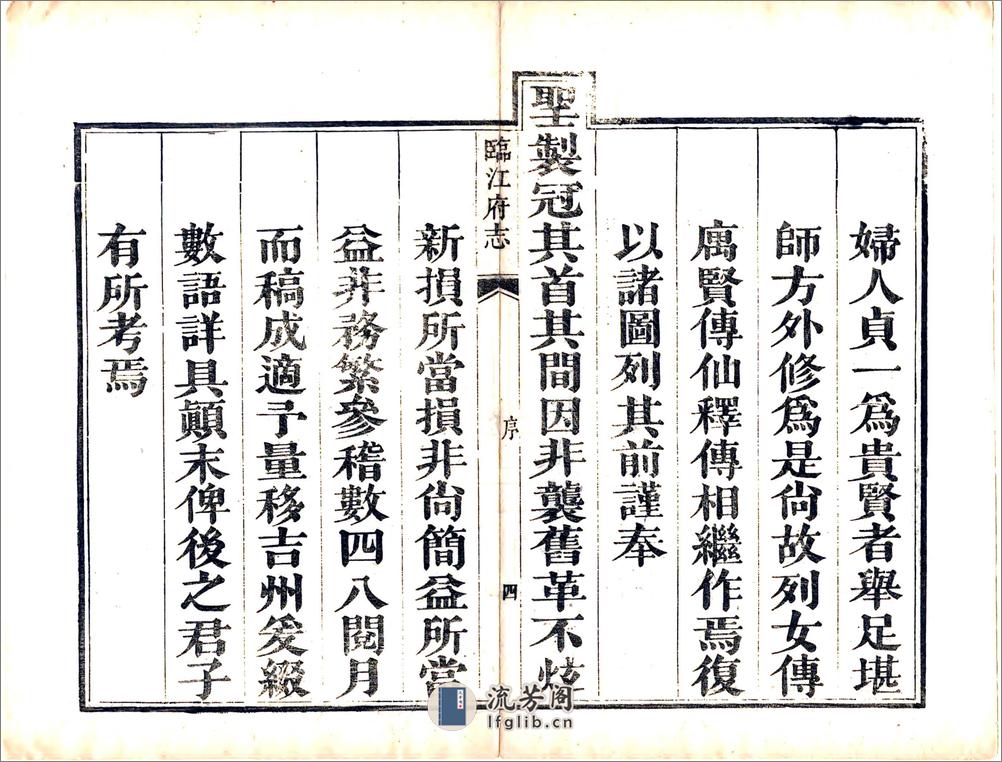 婦人貞一爲貴賢者舉足堪
師方外修爲是尚故列女傳
庽賢傳仙釋傳相繼作焉復
以諸圖列其前謹奉
聖製冠其首其間因非襲舊革不炫
臨江府志
序
四
新損所當損非尚簡益所當
益非務繁參稽數四八閱月
而稿成適予量移吉州爰綴
數語詳具顛末俾後之君子
有所考焉
流芳阁
lfglib.cn